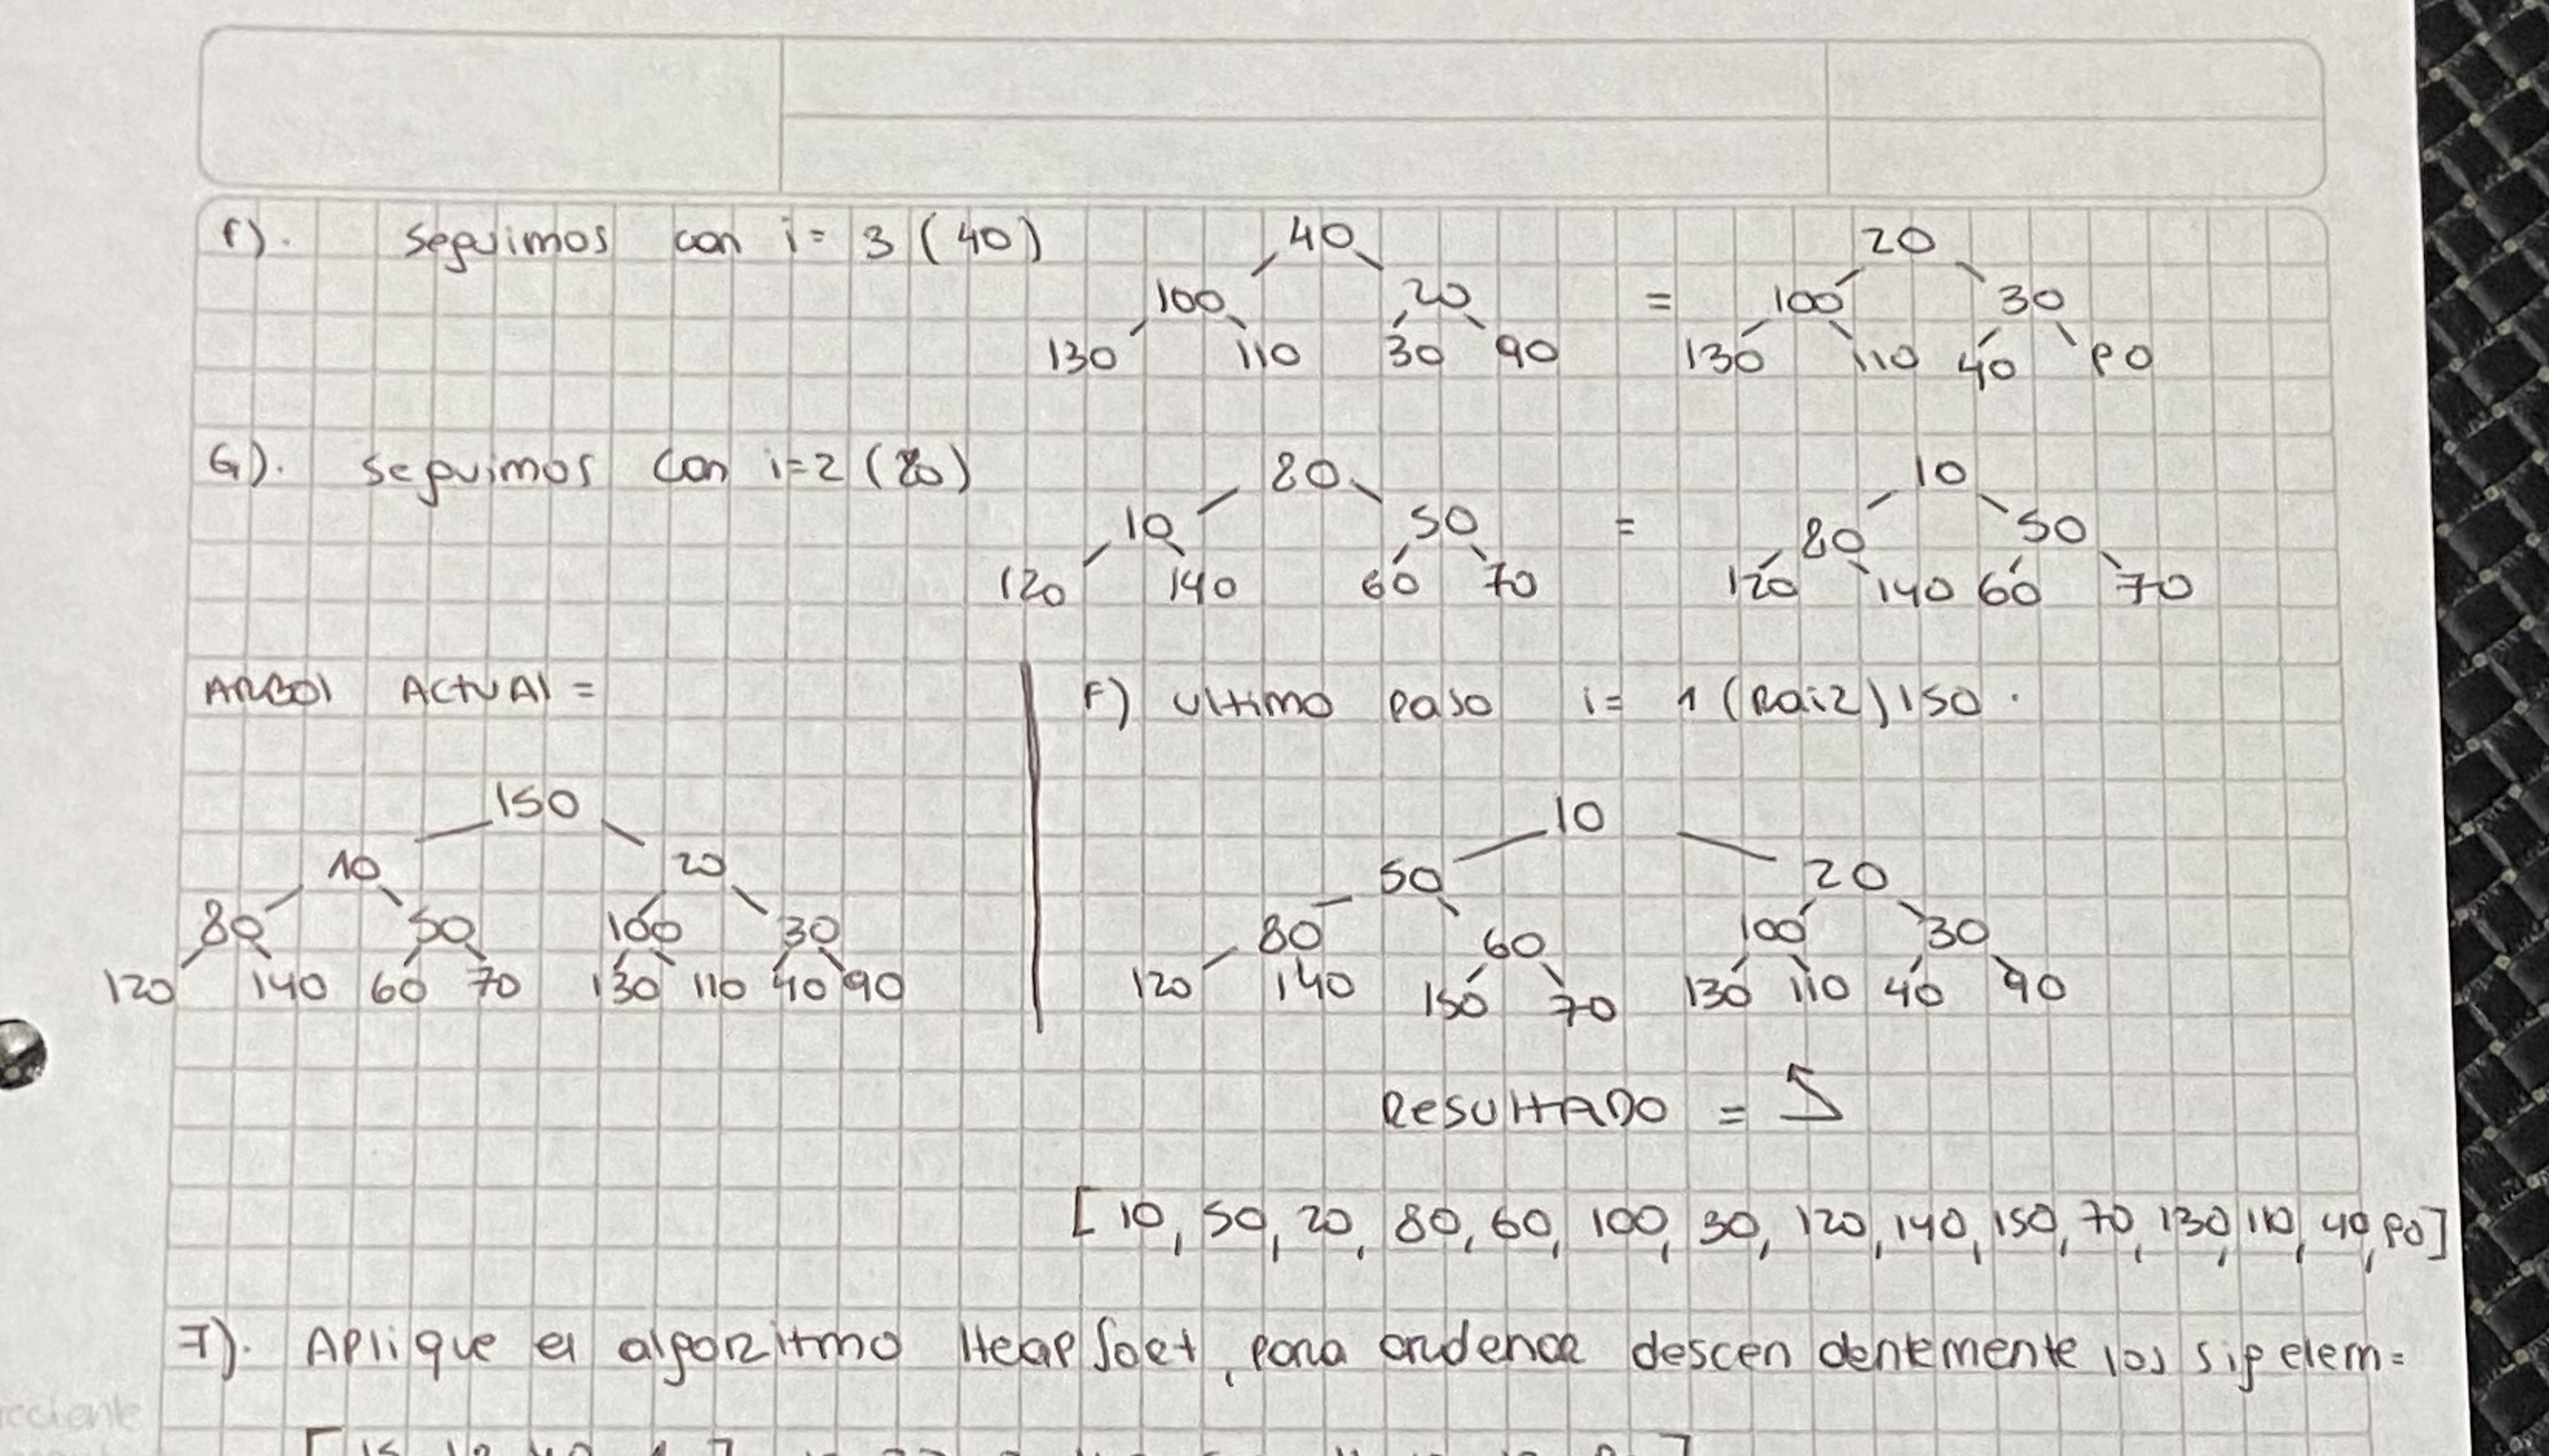 F). Seguimos con i= 3 (40)
40
100 20
130 110 30 90
=
20
100 30
130 110 40 90
G). Seguimos con i=2 (80)
80
10 50
120 140 60 70
=
10
80 50
120 140 60 70
ARBOl ACtUAl =
150
10 20
80 50 100 30
120 140 60 70 130 110 40 90
F) Ultimo paso i= 1 (Raiz) 150.
10
50 20
80 60 100 30
120 140 150 70 130 110 40 90
ResultADO =
[10, 50, 20, 80, 60, 100, 30, 120, 140, 150, 70, 130, 110, 40, 90]
7). Aplique el algoritmo HeapSort, para ordenar descendentemente los sig elem=